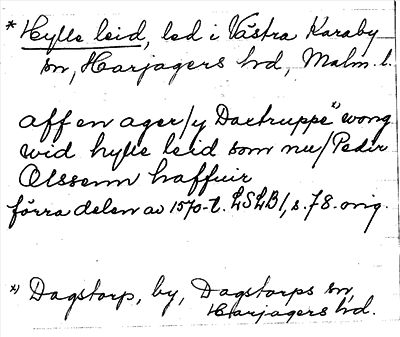 * Hylle leid, led i Västra Karaby
sn, Harjagers hd, Malm. l.
aff en ager/y Dastruppe* wong
wid hylle leid som nu/Peder
Olssenn haffuir
förra delen av 1570-t. LSLB1, s. 78. orig.
*) Dagstorp, by, Dagstorps sn,
Harjagers hd.